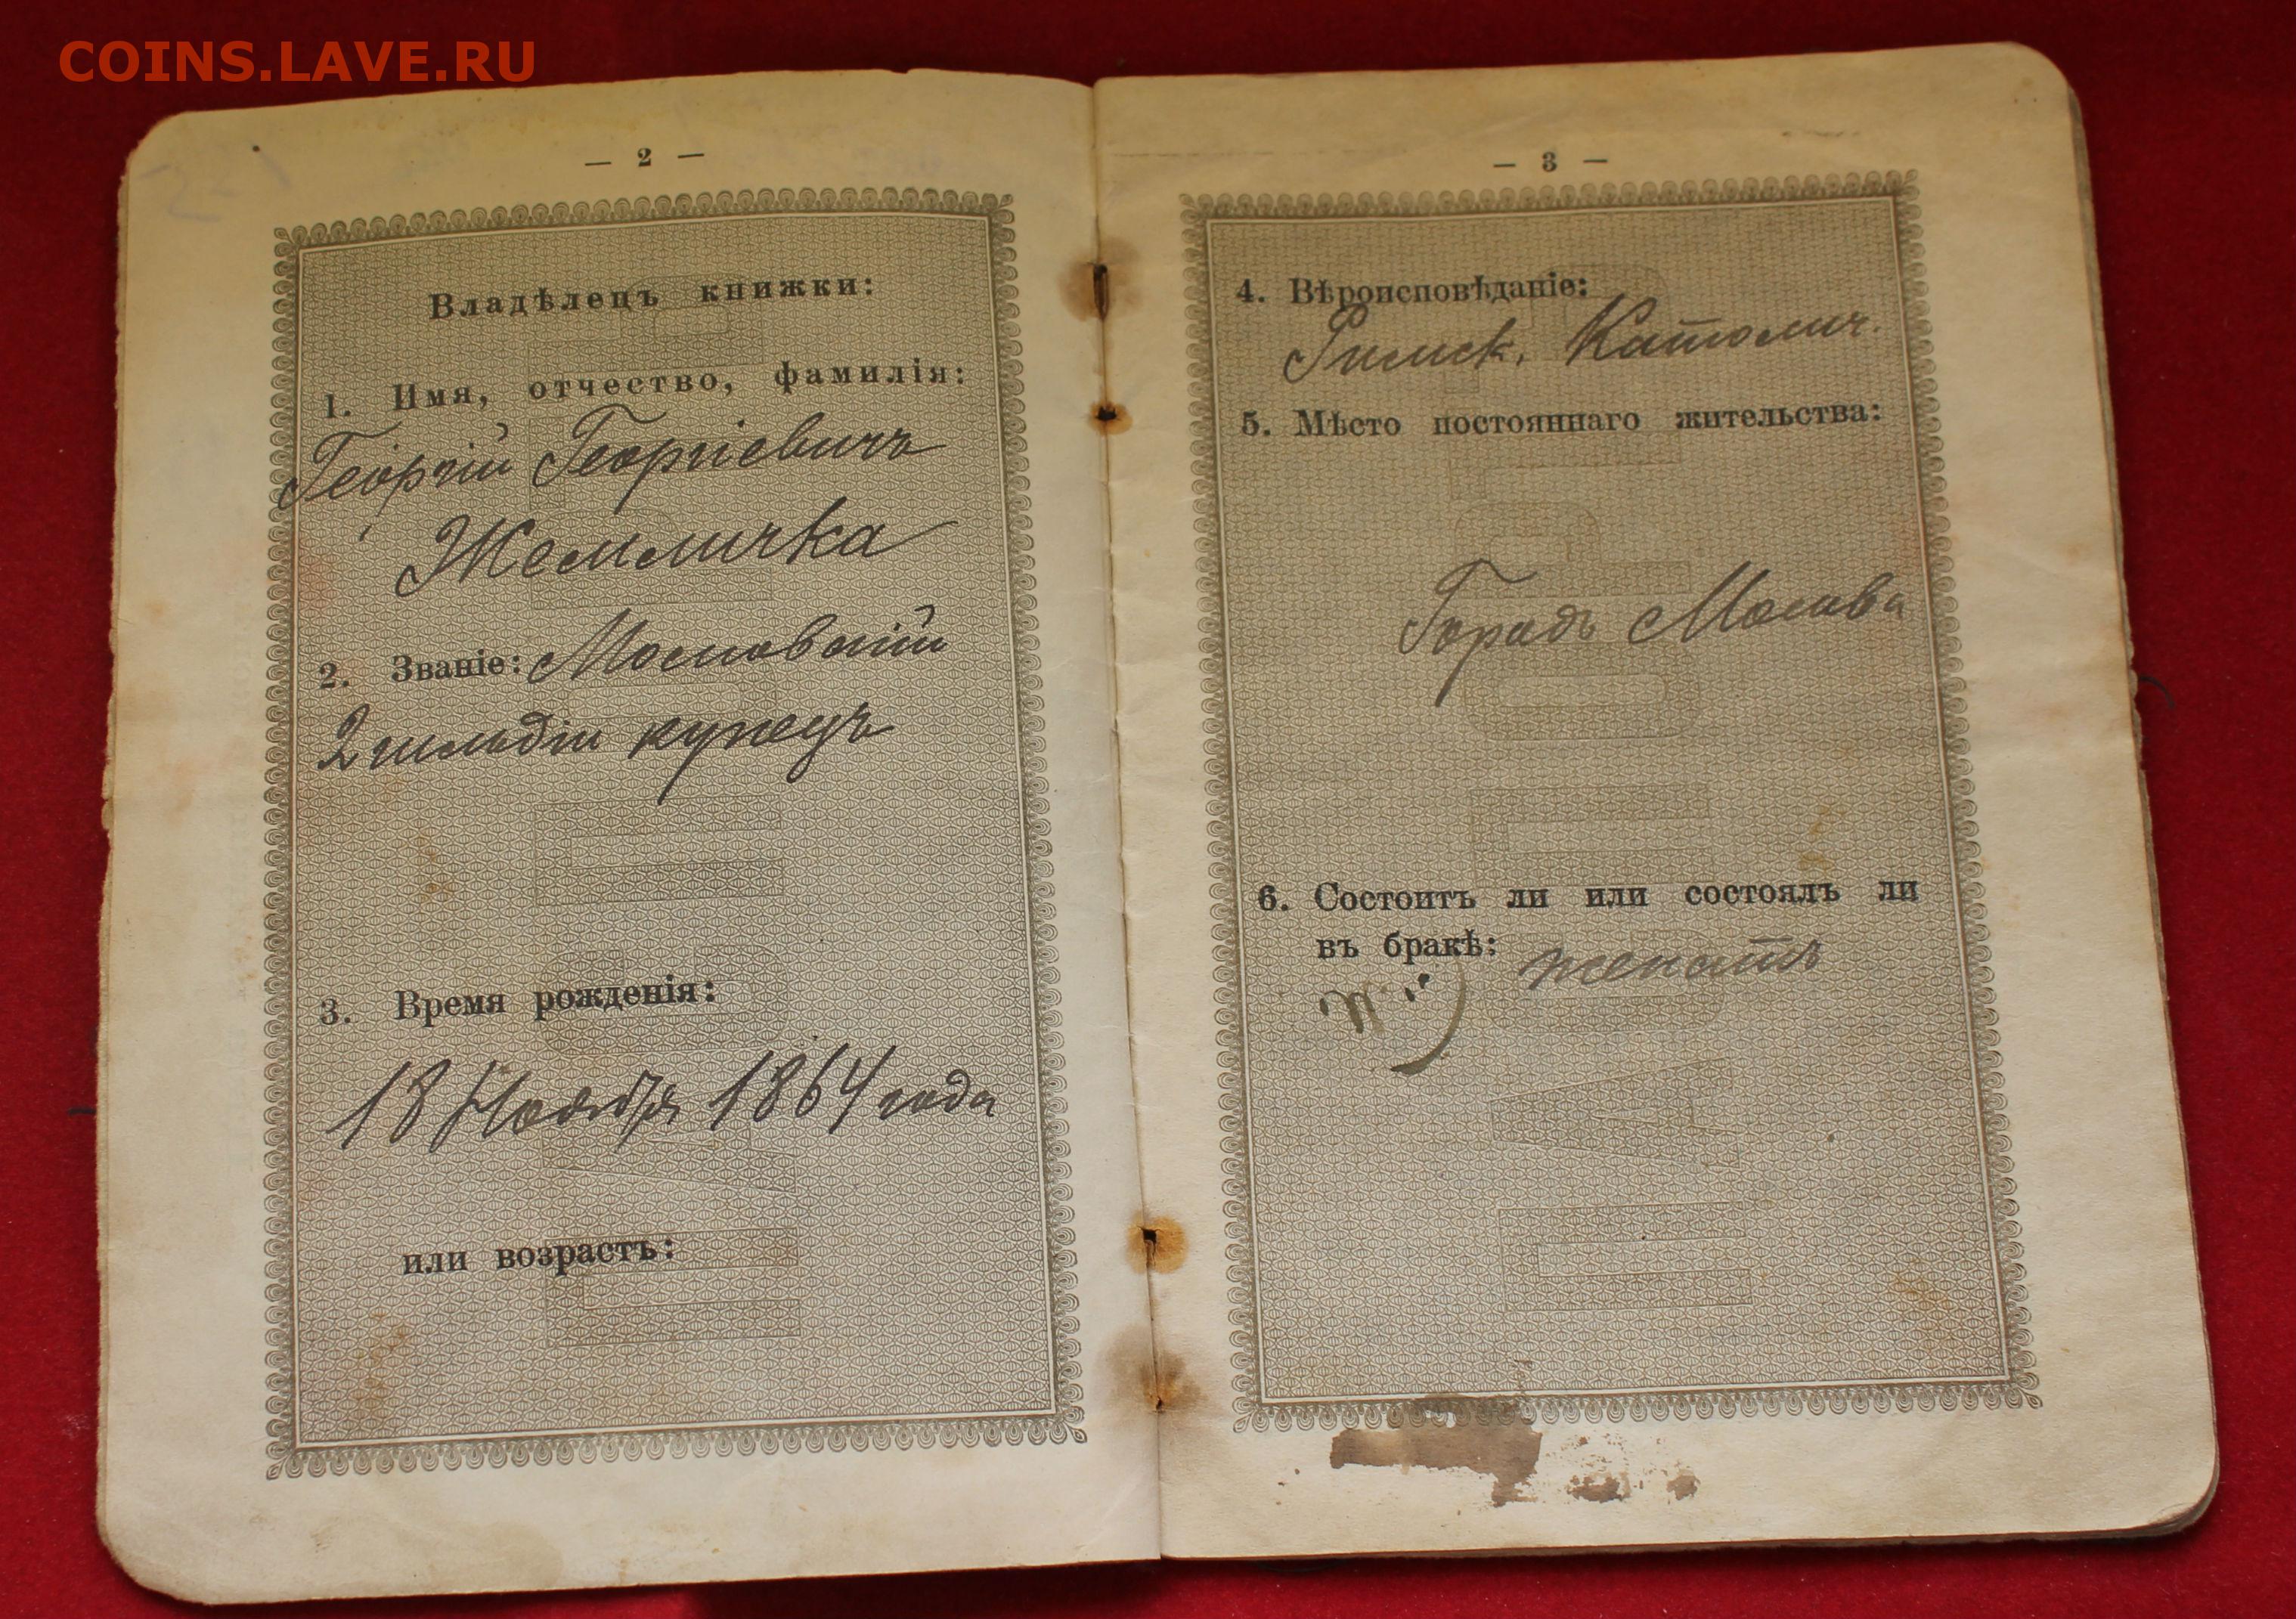 COINS.LAVE.RU
— 2 —
Владѣлецъ книжки:
1. Имя, отчество, фамилія:
Георгій Георгіевичъ
Жемличка
2. Званіе: Московскій
2 гильдіи купецъ
3. Время рожденія:
18 Ноября 1864 года
или возрастъ:
— 3 —
4. Вѣроисповѣданіе:
Римск. Католич.
5. Мѣсто постояннаго жительства:
Городъ Москва
6. Состоитъ ли или состоялъ ли
въ бракѣ: женатъ